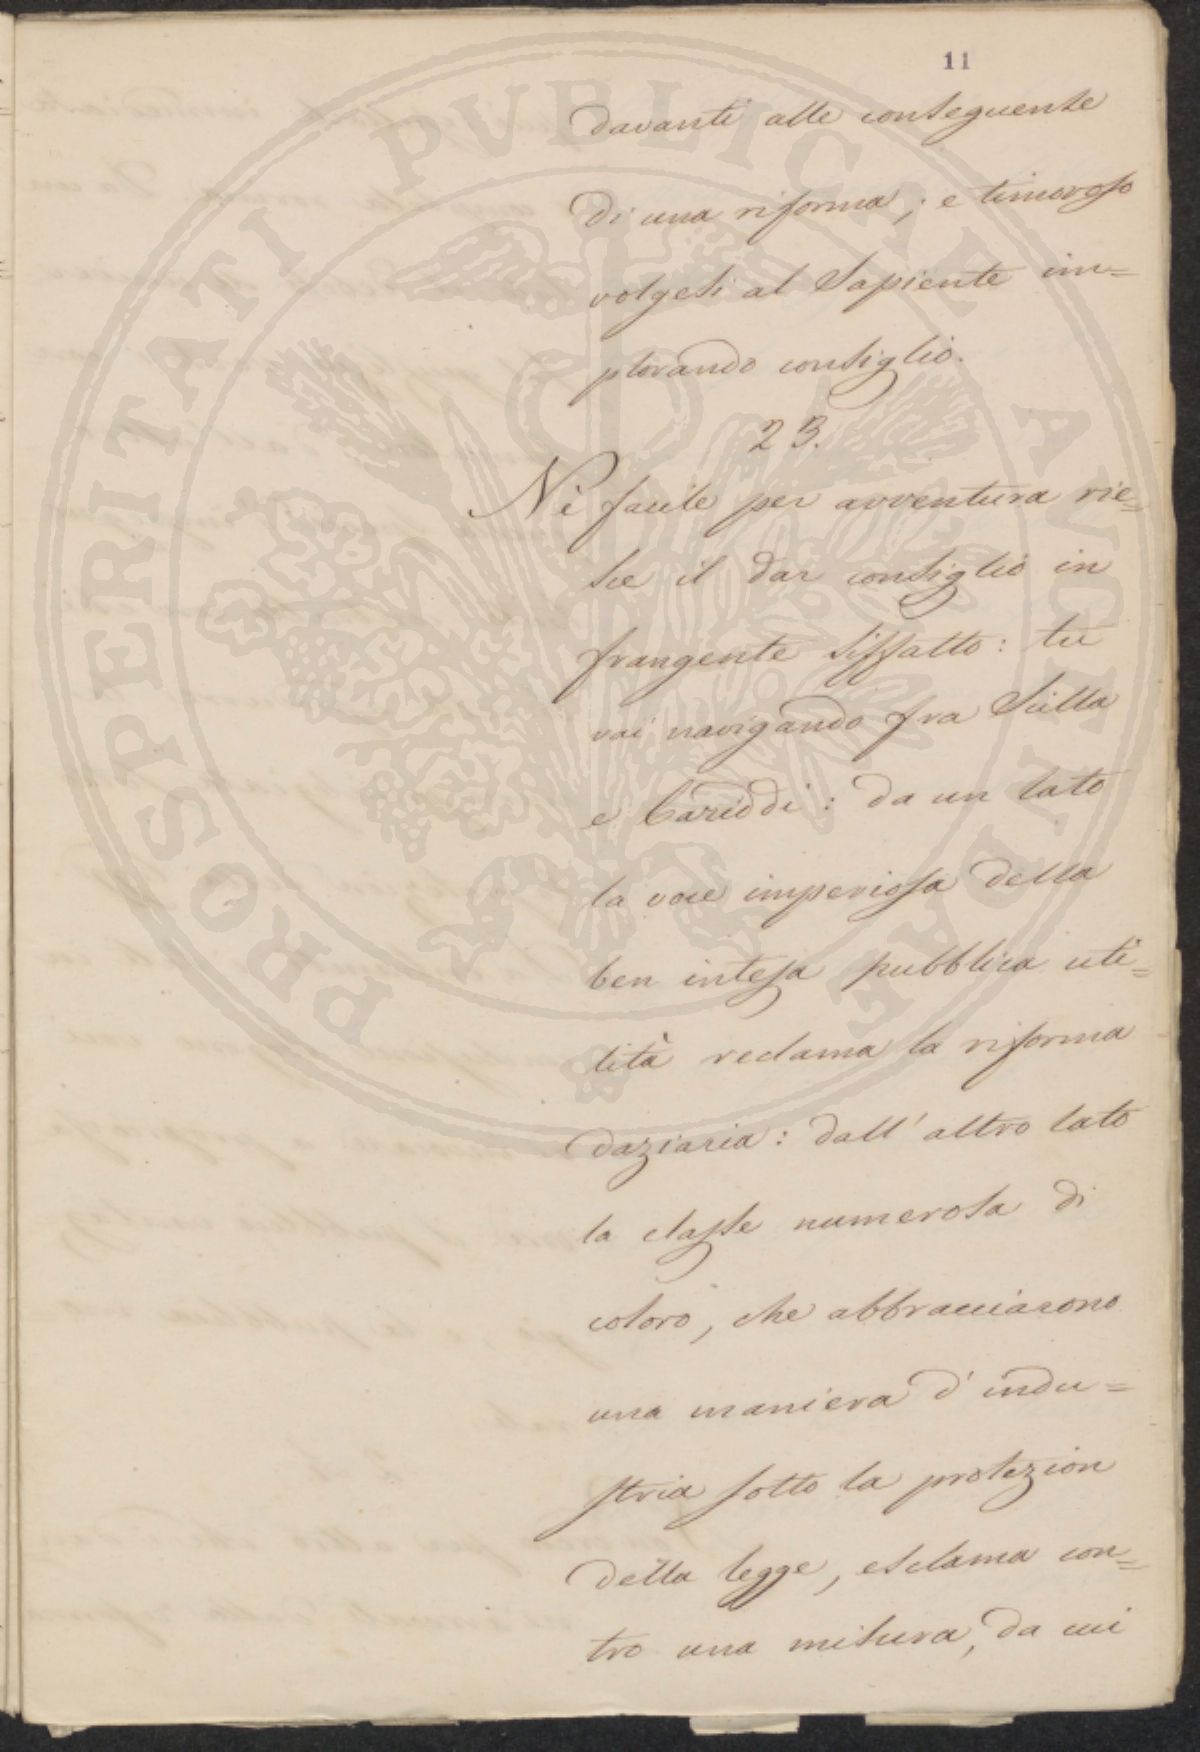 11
davanti alle conseguenze
di una riforma; e timoroso
volgesi al Sapiente im=
plorando consiglio.
23.
Nè facile per avventura rie=
sce il dar consiglio in
frangente siffatto: tu
vai navigando fra Scilla
e Cariddi: da un lato
la voce imperiosa della
ben intesa pubblica uti=
lità reclama la riforma
daziaria: dall'altro lato
la classe numerosa di
coloro, che abbracciarono
una maniera d'indu=
stria sotto la protezion
della legge, esclama con=
tro una misura, da cui
PROSPERITATI PVBLICAE AVGENDAE